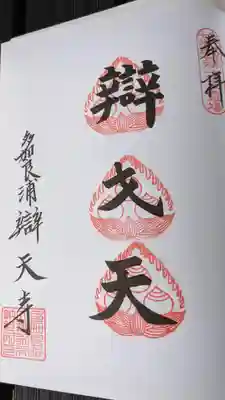 奉拝
辯才天
良浦辯天寺